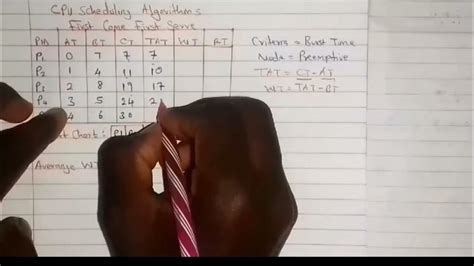 CPU Scheduling Algorithms
First Come First Serve
PId AT BT CT TAT WT RT
P1 0 7 7 7
P2 1 4 11 10
P3 2 8 19 17
P4 3 5 24 2
4 6 30
Criteria = Burst Time
Mode = Preemptive
TAT = CT - AT
WT = TAT - BT
t Chart: P1
Average WT